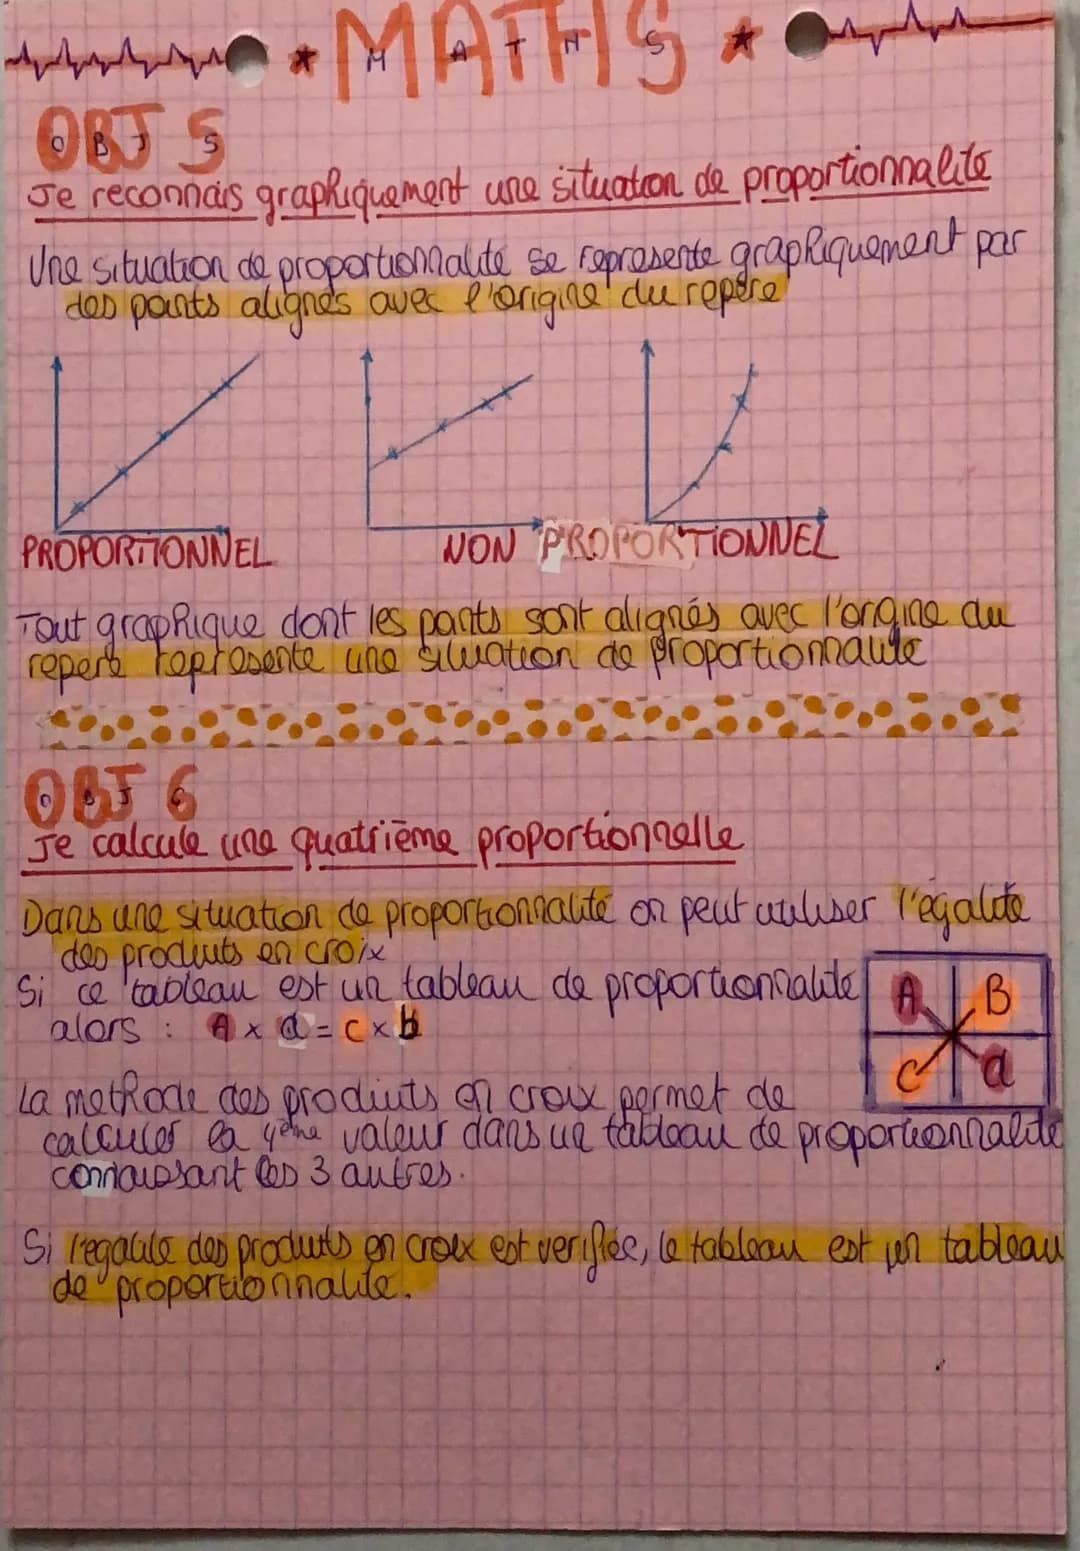 MATHS
OBJ 5
Je reconnais graphiquement une situation de proportionnalité
Une situation de proportionnalité se représente graphiquement par
des points alignés avec l'origine du repère
PROPORTIONNEL
NON PROPORTIONNEL
Tout graphique dont les points sont alignés avec l'origine du
repère représente une situation de proportionnalité
OBJ 6
Je calcule une quatrième proportionnelle
Dans une situation de proportionnalité on peut utiliser l'égalité
des produits en croix
Si ce tableau est un tableau de proportionnalité
alors : A x d = c x b
A B
C d
La methode des produits en croix permet de
calculer la 4ème valeur dans un tableau de proportionnalité
connaissant les 3 autres.
Si l'egalité des produits en croix est verifiée, le tableau est un tableau
de proportionnalité.